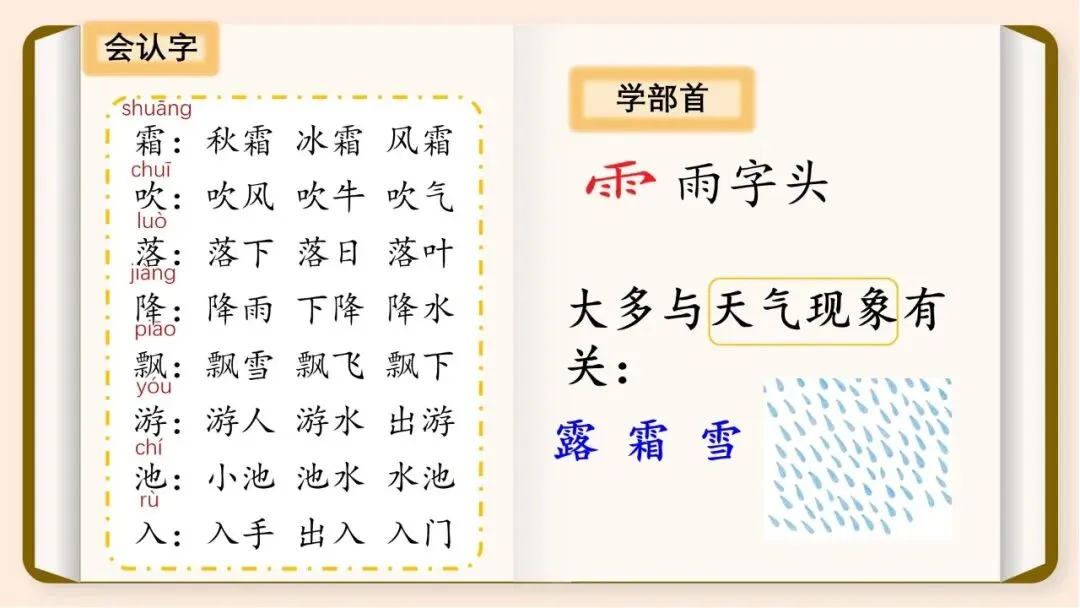 会认字
shuāng
霜：秋霜 冰霜 风霜
chuī
吹：吹风 吹牛 吹气
luò
落：落下 落日 落叶
jiàng
降：降雨 下降 降水
piāo
飘：飘雪 飘飞 飘下
yóu
游：游人 游水 出游
chí
池：小池 池水 水池
rù
入：入手 出入 入门
学部首
⻗ 雨字头
大多与天气现象有
关：
露 霜 雪